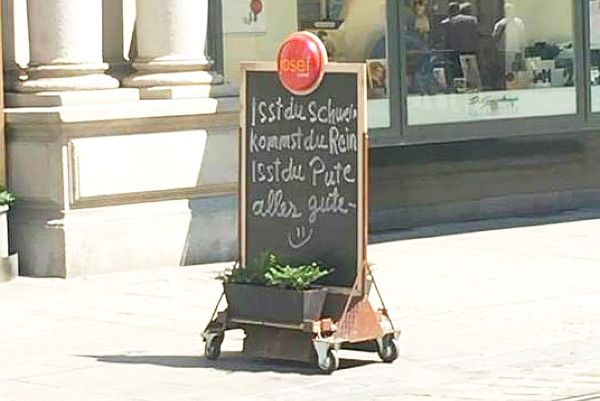 osef
Isst du Schwein
kommst du Rein
Isst du Pute
alles gute-